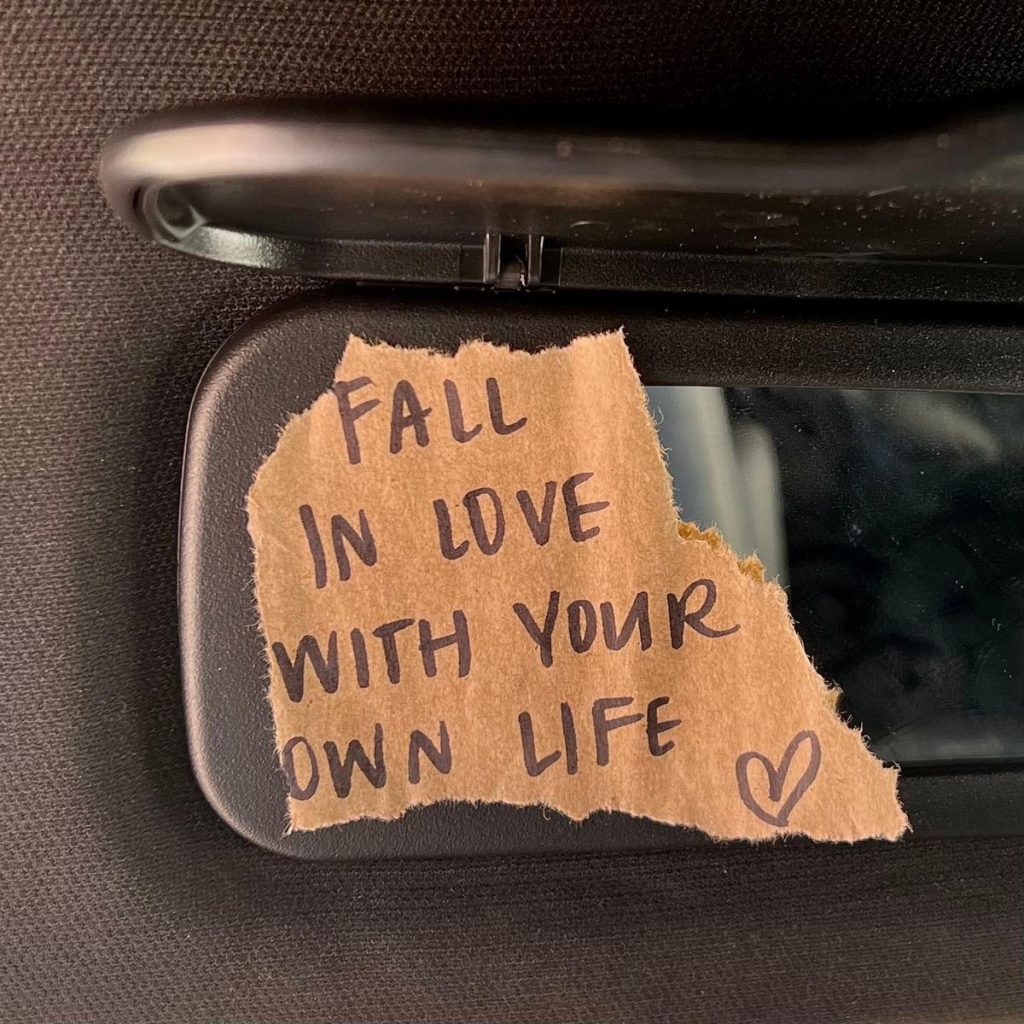 FALL
IN LOVE
WITH YOUR
OWN LIFE